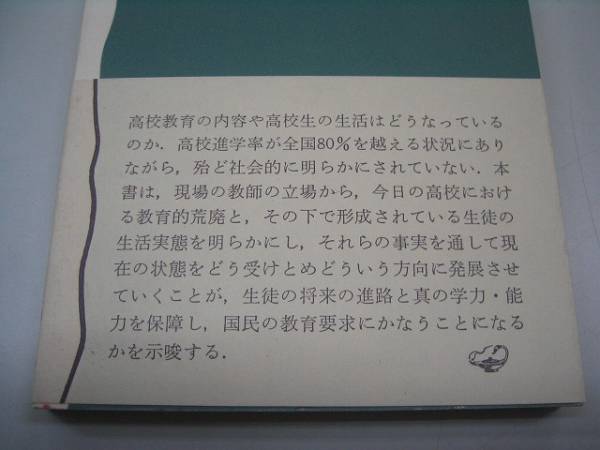 高校教育の内容や高校生の生活はどうなっている
のか．高校進学率が全国80％を越える状況にあり
ながら，殆ど社会的に明らかにされていない．本
書は，現場の教師の立場から，今日の高校におけ
る教育的荒廃と，その下で形成されている生徒の
生活実態を明らかにし，それらの事実を通して現
在の状態をどう受けとめどういう方向に発展させ
ていくことが，生徒の将来の進路と真の学力・能
力を保障し，国民の教育要求にかなうことになる
かを示唆する．